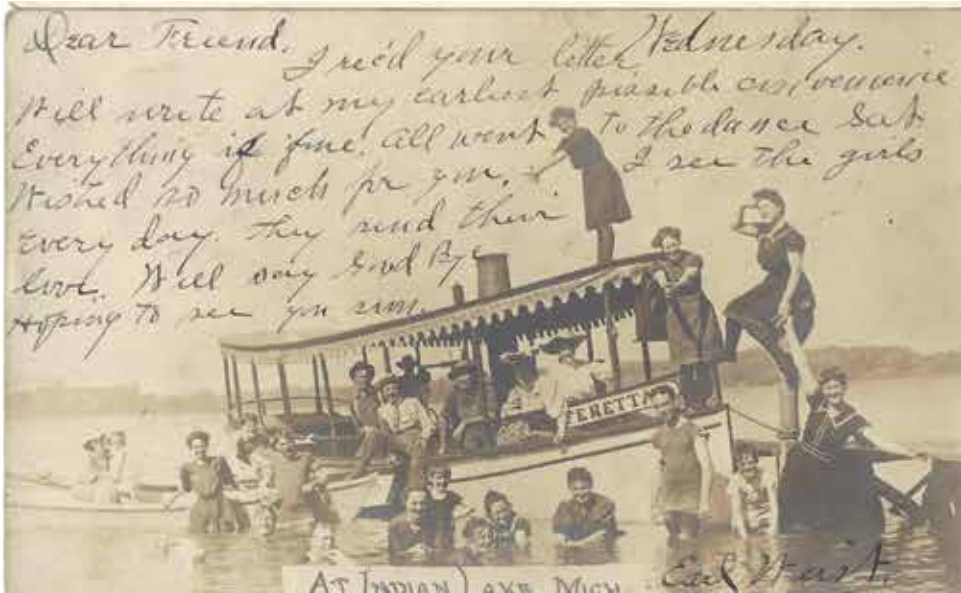 Dear Friend.
I rec'd your letter Wednesday.
Will write at my earliest possible convenience
Everything is fine. All went to the dance Sat
Wished so much for you. I see the girls
Every day. They send their
love. Will say Good Bye
Hoping to see you soon.
FERETTA
AT INDIAN LAKE MICH.
Earl